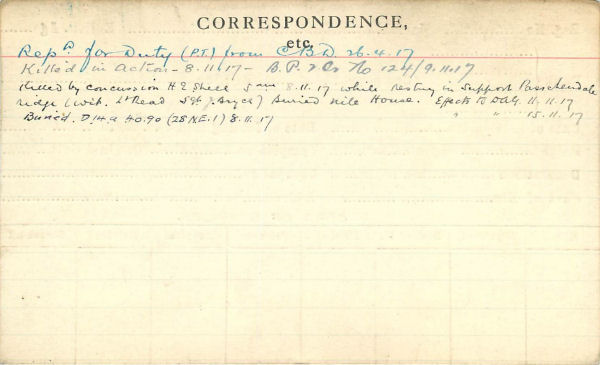 CORRESPONDENCE,
etc.
Rep'd for Duty (P.T.) from CBD 26.4.17
Killed in Action - 8.11.17 - B. P. 2 Or No 124/9.11.17
Killed by concussion H E Shell 5 am 8.11.17 while resting in Support Passchendale
ridge (wit. Lt Read Sgt J. Bryce) Buried Nile House. Effects to DAG. 11.11.17
Buried. D 14.a 40.90 (28 N.E.1) 8.11.17 " " 15.11.17